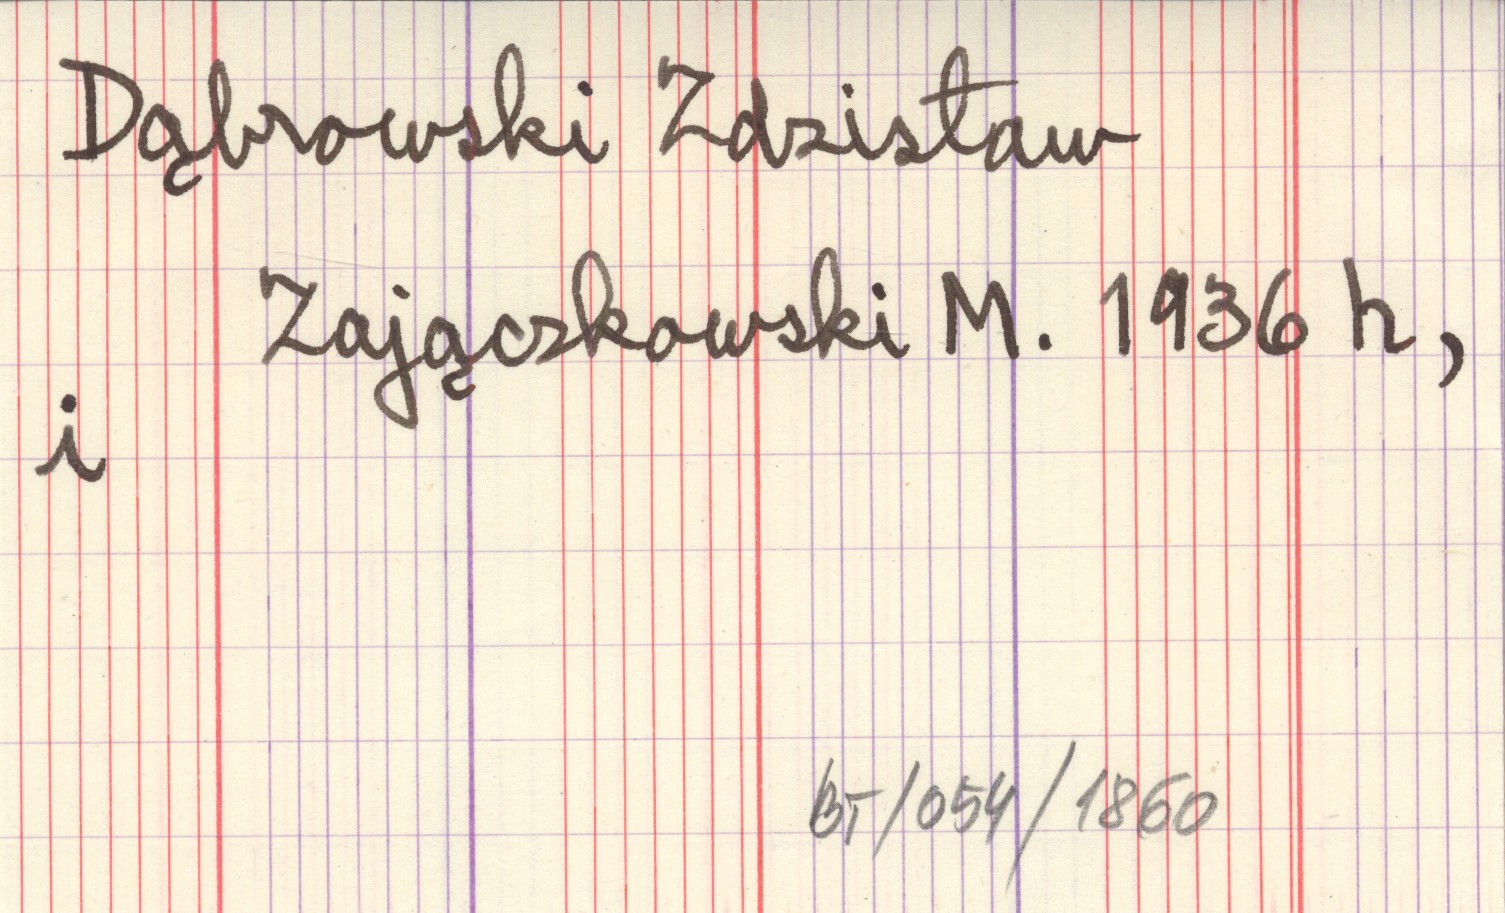 Dąbrowski Zdzisław
Zajączkowski M. 1936 h,
i
BT/054/1860